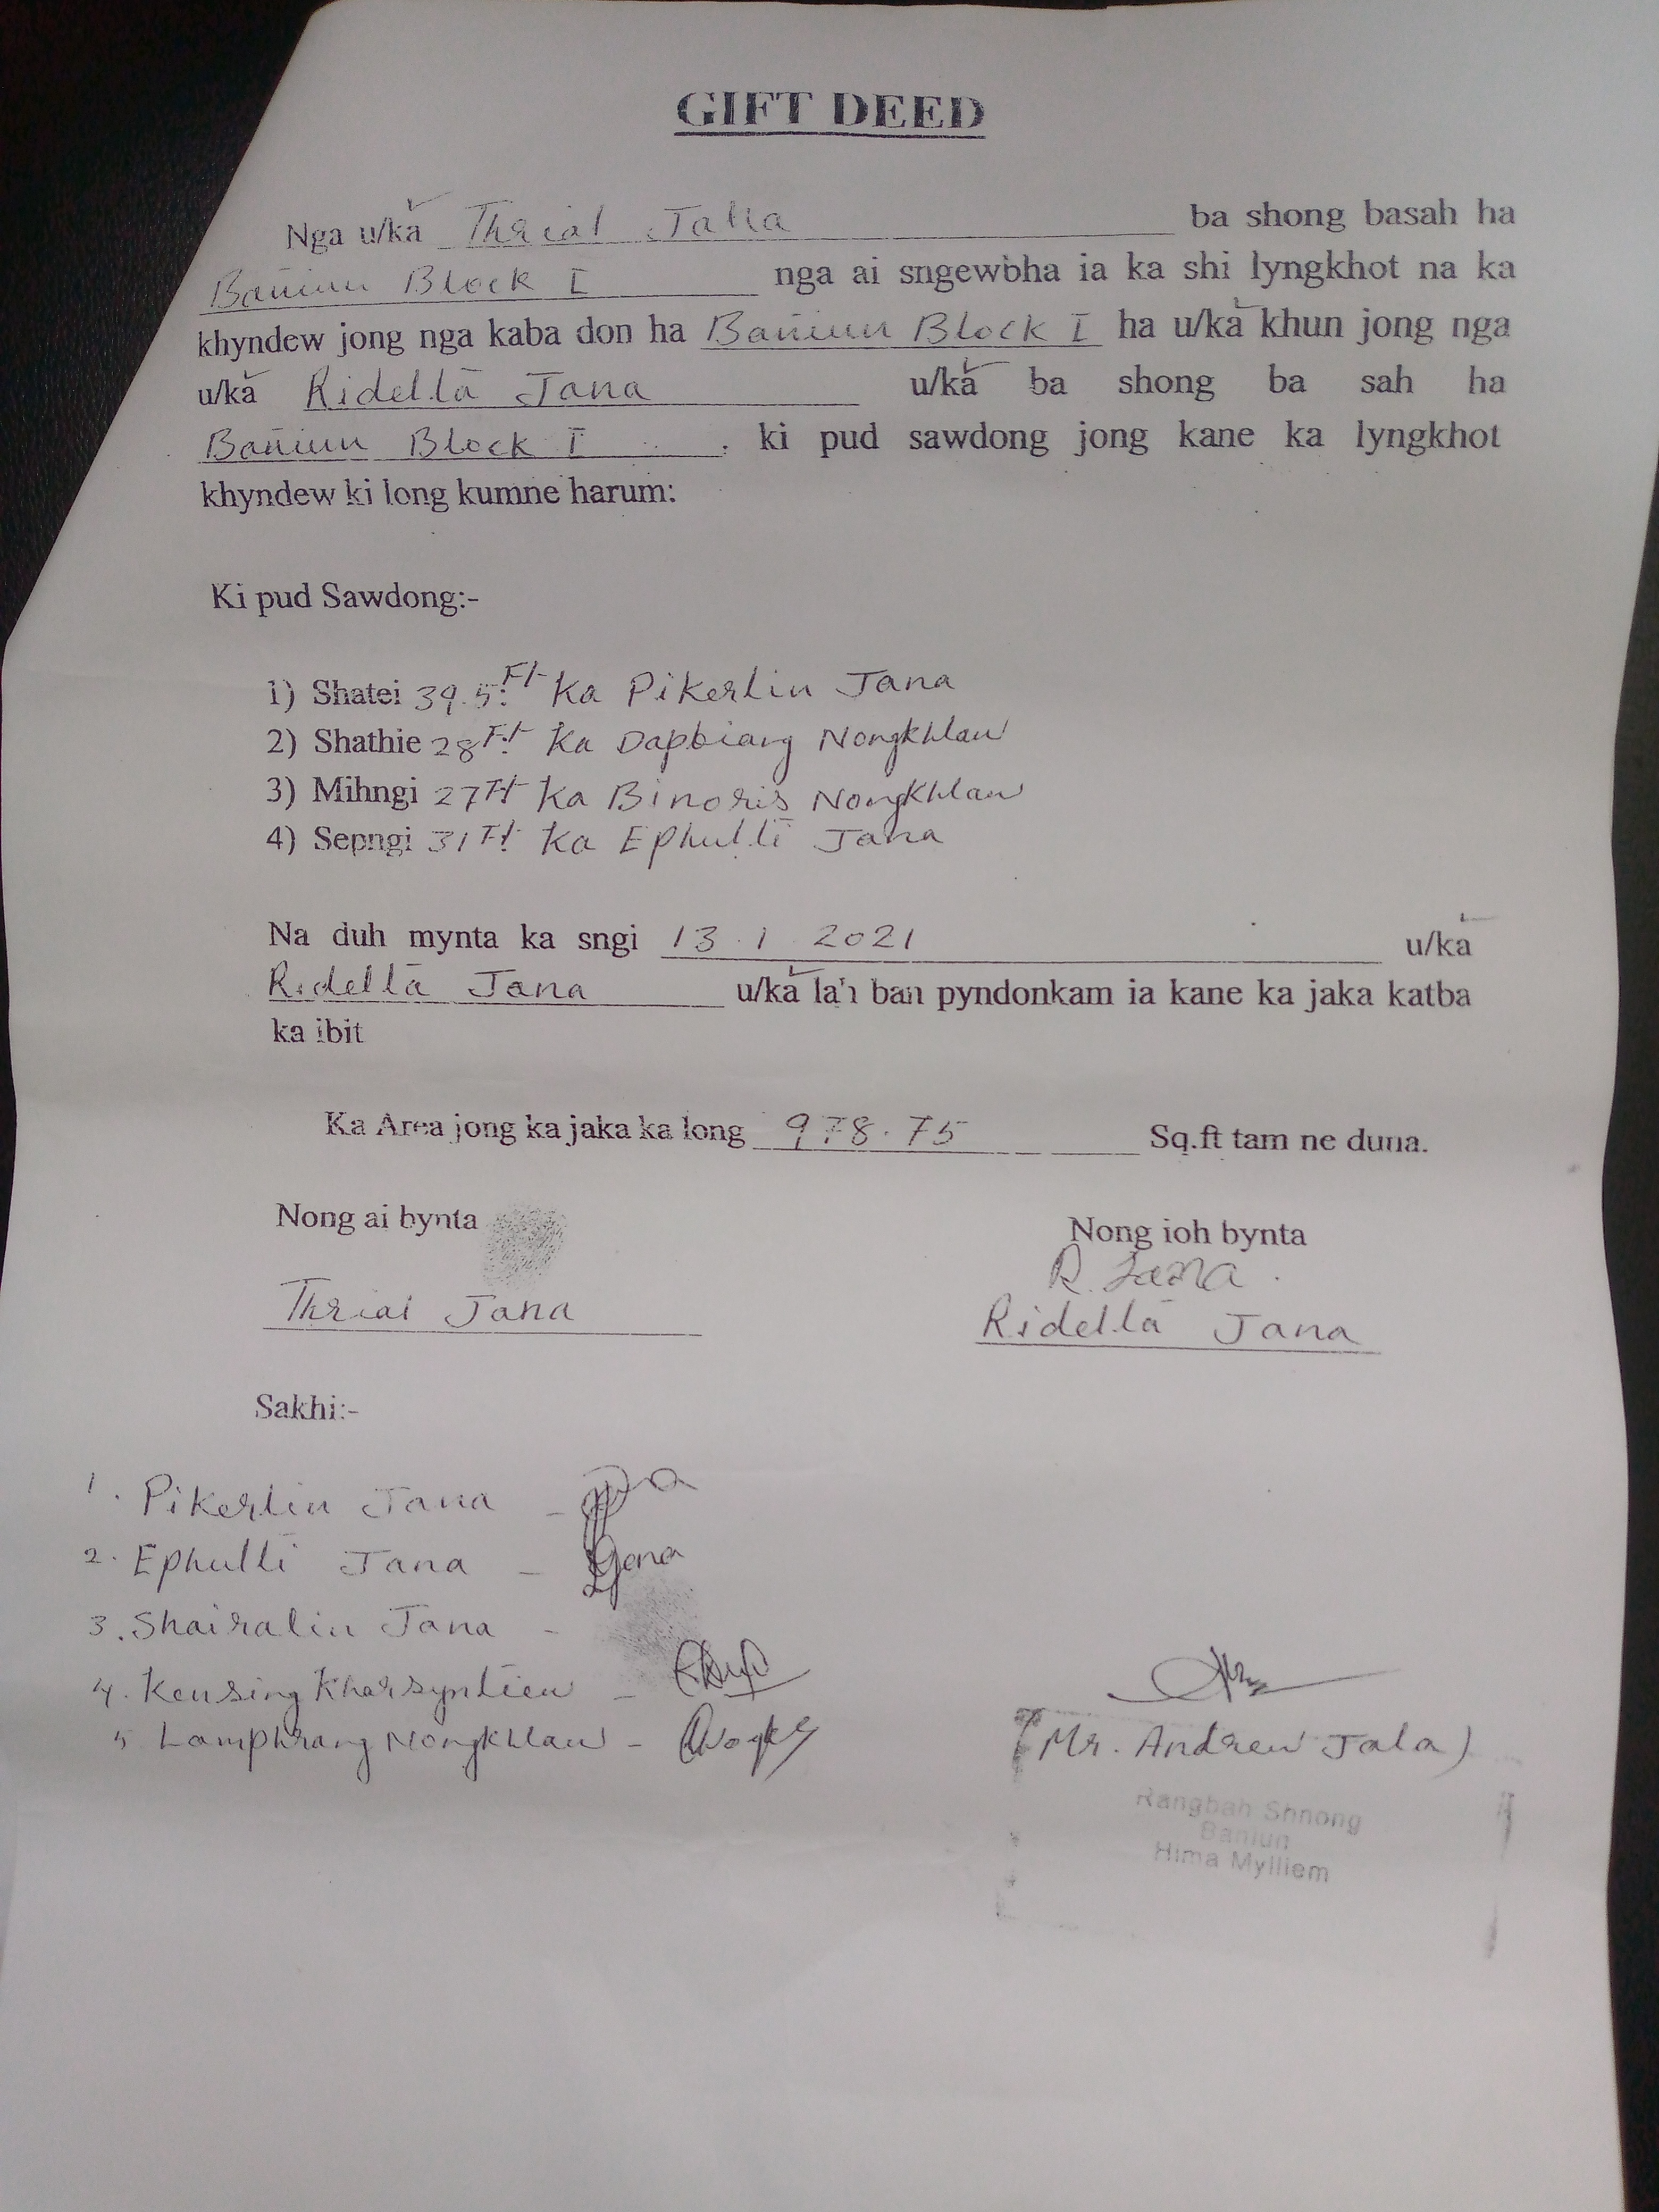 GIFT DEED
Nga u/ka Thrial Jana ba shong basah ha
Baniun Block I nga ai sngewbha ia ka shi lyngkhot na ka
khyndew jong nga kaba don ha Baniun Block I ha u/ka khun jong nga
u/ka Ridella Jana u/ka ba shong ba sah ha
Baniun Block I . ki pud sawdong jong kane ka lyngkhot
khyndew ki long kumne harum:
Ki pud Sawdong:-
1) Shatei 39.5 Ft Ka Pikerlin Jana
2) Shathie 28 Ft Ka Dapbiang Nongkhlaw
3) Mihngi 27 Ft Ka Binoris Nongkhlaw
4) Sepngi 31 Ft Ka Ephulli Jana
Na duh mynta ka sngi 13.1.2021 u/ka
Ridella Jana u/ka lah ban pyndonkam ia kane ka jaka katba
ka ibit
Ka Area jong ka jaka ka long 978.75 Sq.ft tam ne duna.
Nong ai bynta
Nong ioh bynta
R. Jana
Thrial Jana
Ridella Jana
Sakhi:-
1. Pikerlin Jana -
2. Ephulli Jana - Jana
3. Shairalin Jana -
4. Kensing Kharsyntiew -
5 Lamphrang Nongkhlaw -
(Mr. Andrew Jala)
Rangbah Shnong
Baniun
Hima Mylliem